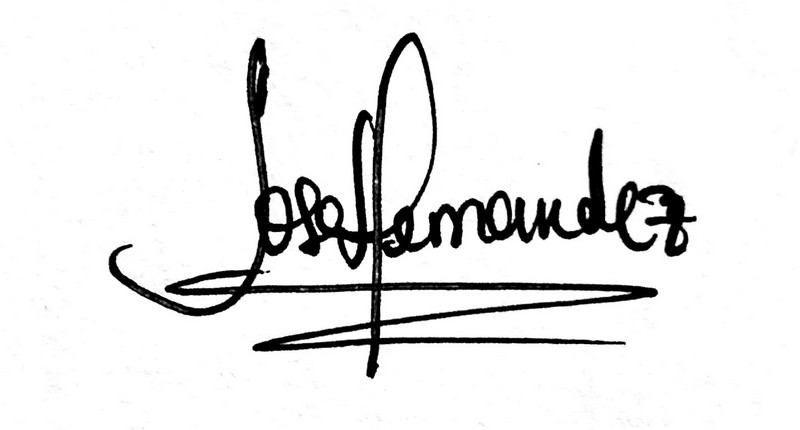 Jose Fernandez